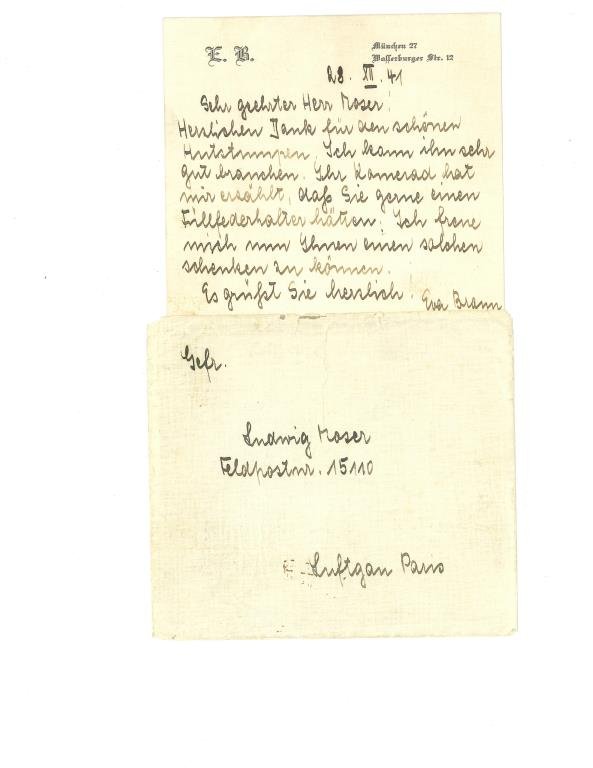 E. B.
München 27
Wasserburger Str. 12
28. XII. 41
Sehr geehrter Herr Moser!
Herzlichen Dank für den schönen
Hutstumpen. Ich kann ihn sehr
gut brauchen. Ihr Kamerad hat
mir erzählt, daß Sie gerne einen
Füllfederhalter hätten. Ich freue
mich nun Ihnen einen solchen
schenken zu können.
Es grüßt Sie herzlich! Eva Braun
Gefr.
Ludwig Moser
Feldpostnr. 15110
Luftgau Paris